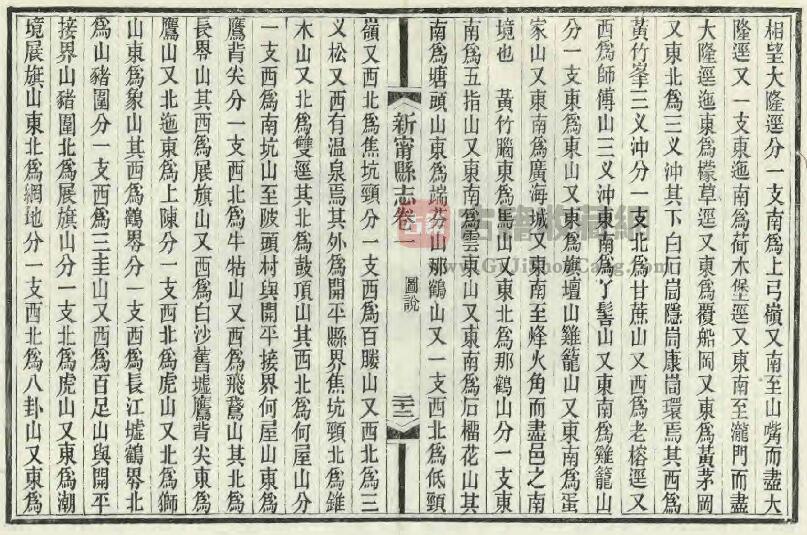 相望大隆逕分一支南爲上弓嶺又南至山嘴而盡大
隆逕又一支東迤南爲荷木堡逕又東南至瀧門而盡
大隆逕迤東爲檬草逕又東爲覆船岡又東爲黃茅岡
又東北爲三义沖其下白石㟅隱㟅康㟅環焉其西爲
黃竹峯三义沖分一支北爲甘蔗山又西爲老榕逕又
西爲師傅山三义沖東南爲丫髻山又東南爲雞籠山
分一支東爲東山又東爲旗壇山雞籠山又東南爲蛋
家山又東南爲廣海城又東南至烽火角而盡邑之南
境也 黃竹腦東爲馬山又東北爲那鶴山分一支東
南爲五指山又東南爲雲東山又東南爲石橊花山其
南爲塘頭山東爲端芬山那鶴山又一支西北爲低頸
新甯縣志卷一 圖說 二十三
嶺又西北爲焦坑頸分一支西爲百䐁山又西北爲三
义松又西有温泉焉其外爲開平縣界焦坑頸北爲錐
木山又北爲雙逕其北爲鼓頂山其西北爲何屋山分
一支西爲南坑山至陂頭村與開平接界何屋山東爲
鷹背尖分一支西北爲牛牯山又西爲飛鵞山其北爲
長㟅山其西爲展旗山又西爲白沙舊墟鷹背尖東爲
鷹山又北迤東爲上陳分一支西北爲虎山又北爲獅
山東爲象山其西爲鶴㟅分一支西爲長江墟鶴㟅北
爲山豬圍分一支西爲三圭山又西爲百足山與開平
接界山豬圍北爲展旗山分一支北爲虎山又東爲潮
境展旗山東北爲網地分一支西北爲八卦山又東爲
古籍收藏網
www.GuJiShouCang.com